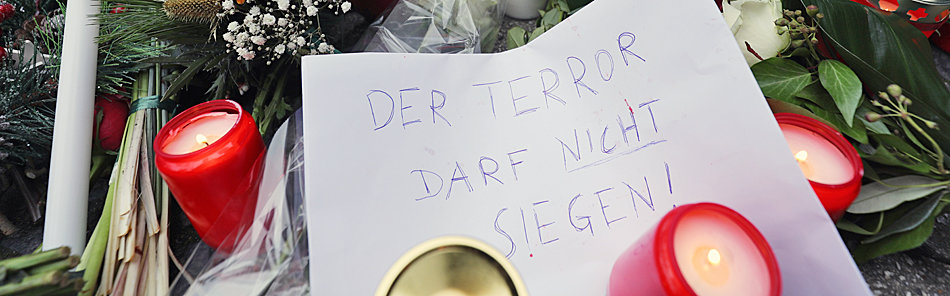 DER TERROR
DARF NICHT
SIEGEN!